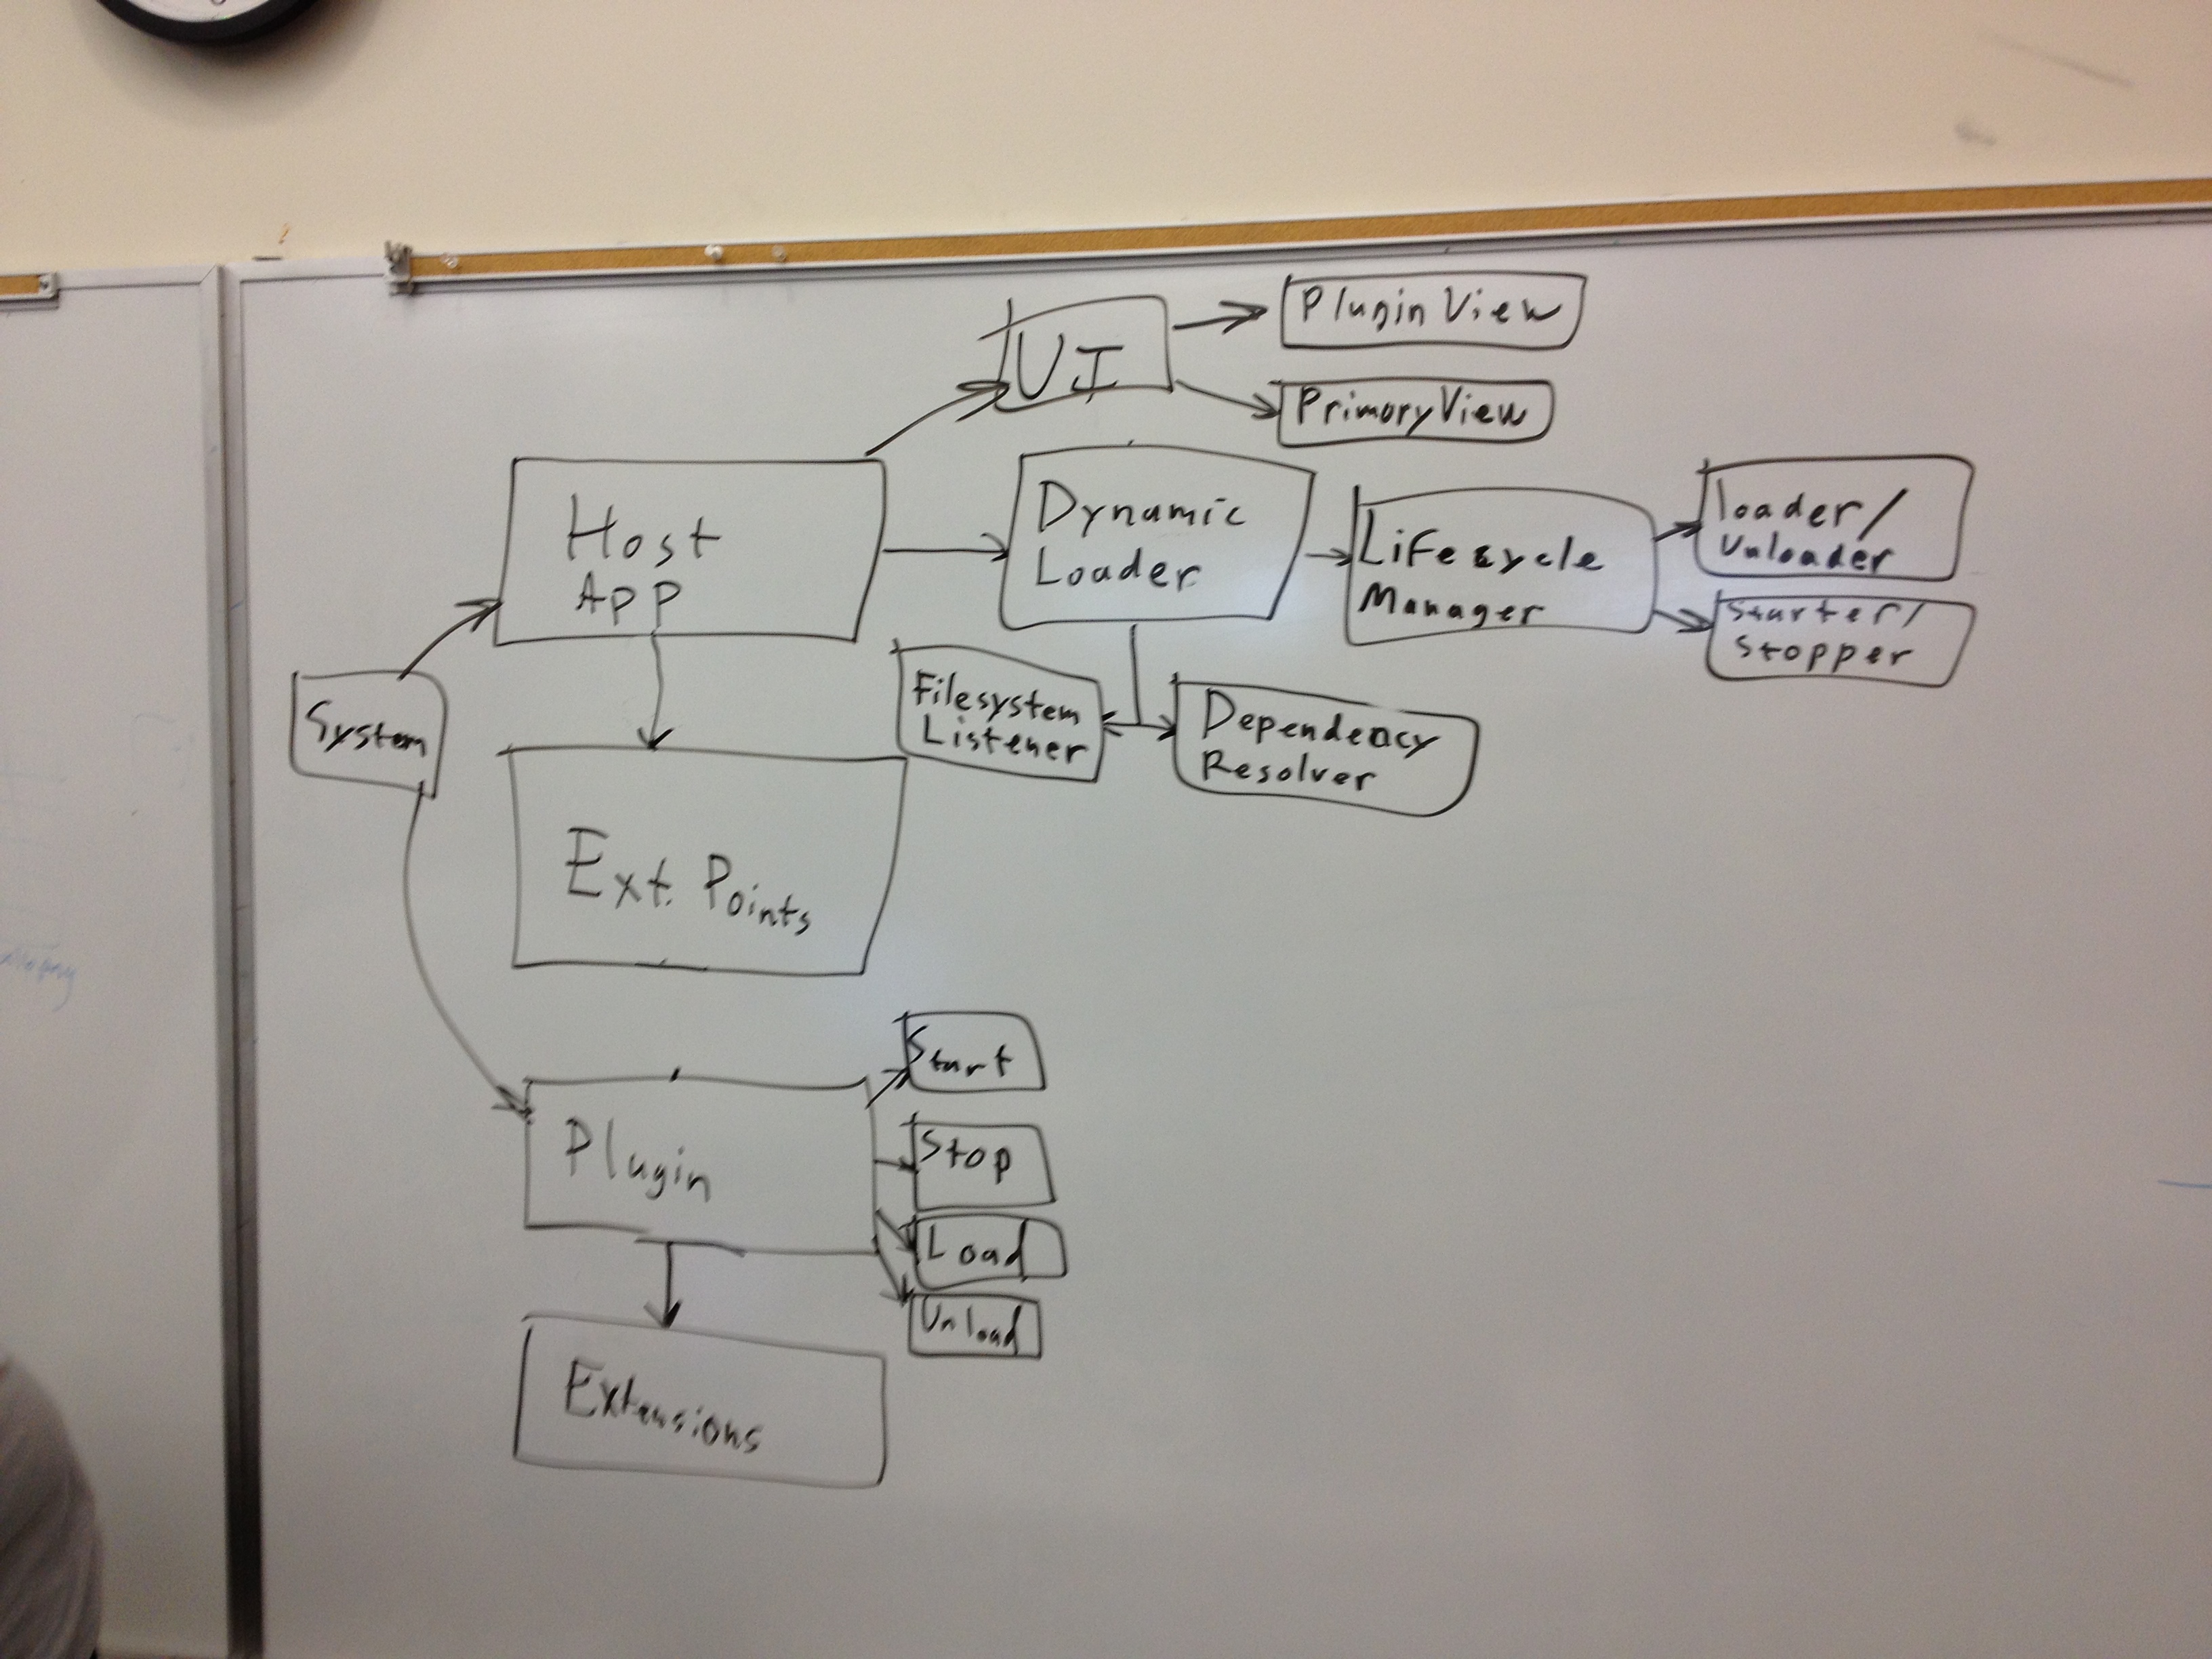 UI
Plugin View
PrimaryView
Host
App
Dynamic
Loader
Lifecycle
Manager
loader/
Unloader
Starter/
Stopper
System
Filesystem
Listener
Dependency
Resolver
Ext. Points
Plugin
Start
Stop
Load
Unload
Extensions